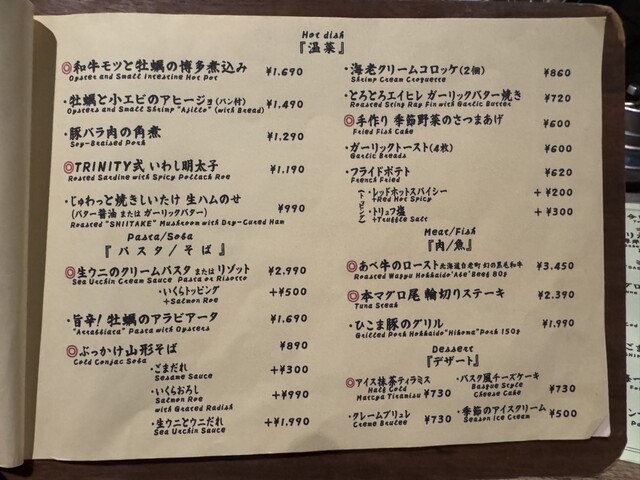 Hot dish
『温菜』
◎和牛モツと牡蠣の博多煮込み ¥1.690
Oysters and Small Intestine Hot Pot
・牡蠣と小エビのアヒージョ(パン付) ¥1.490
Oysters and Small Shrimp "Ajillo" (with Bread)
・豚バラ肉の角煮 ¥1.290
Soy-Braised Pork
◎TRINITY式 いわし明太子 ¥1.190
Roasted Sardine with Spicy Pollack Roe
・じゅわっと焼きしいたけ 生ハムのせ ¥990
(バター醤油 または ガーリックバター)
Roasted "SHIITAKE" Mushroom with Dry-Cured Ham
Pasta/Soba
『パスタ/そば』
◎生ウニのクリームパスタ または リゾット ¥2.990
Sea Urchin Cream Sauce Pasta or Risotto
・いくらトッピング +¥500
+Salmon Roe
・旨辛! 牡蠣のアラビアータ ¥1.690
"Arrabbiata" Pasta with Oysters
◎ぶっかけ山形そば ¥890
Cold Conjac Soba
・ごまだれ +¥300
Sesame Sauce
・いくらおろし +¥990
Salmon Roe
with Grated Radish
・生ウニとウニだれ +¥1.990
Sea Urchin Sauce
・海老クリームコロッケ(2個) ¥860
Shrimp Cream Croquette
・とろとろエイヒレ ガーリックバター焼き ¥720
Roasted Sting Ray Fin with Garlic Butter
◎手作り 季節野菜のさつまあげ ¥600
Fried Fish Cake
・ガーリックトースト(4枚) ¥600
Garlic Breads
・フライドポテト ¥620
French Fried
・レッドホットスパイシー +¥200
+Red Hot Spicy
・トリュフ塩 +¥300
+Truffle Salt
Meat/Fish
『肉/魚』
◎あべ牛のロースト 北海道白老町 幻の黒毛和牛 ¥3.450
Roasted Wagyu Hokkaido "Abe" Beef 80g
◎本マグロ尾 輪切りステーキ ¥2.390
Tuna Steak
・ひこま豚のグリル ¥1.990
Grilled Pork Hokkaido "Hikoma" Pork 150g
Dessert
『デザート』
◎アイス抹茶ティラミス ¥730
Half Cold
Matcya Tiramisu
・バスク風チーズケーキ ¥730
Basque Style
Cheese Cake
・クレームブリュレ ¥730
Creme Brulee
・季節のアイスクリーム ¥500
Season Ice Cream